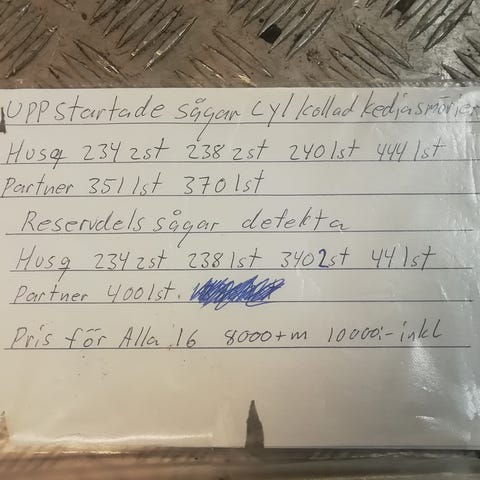 UPPstartade sågar cyl kollad kedjasmörjer
Husq 234 2st 238 2st 240 1st 444 1st
Partner 351 1st 370 1st
Reservdels sågar defekta
Husq 234 2st 238 1st 340 2st 44 1st
Partner 400 1st.
Pris för Alla 16 8000+m 10000:- inkl